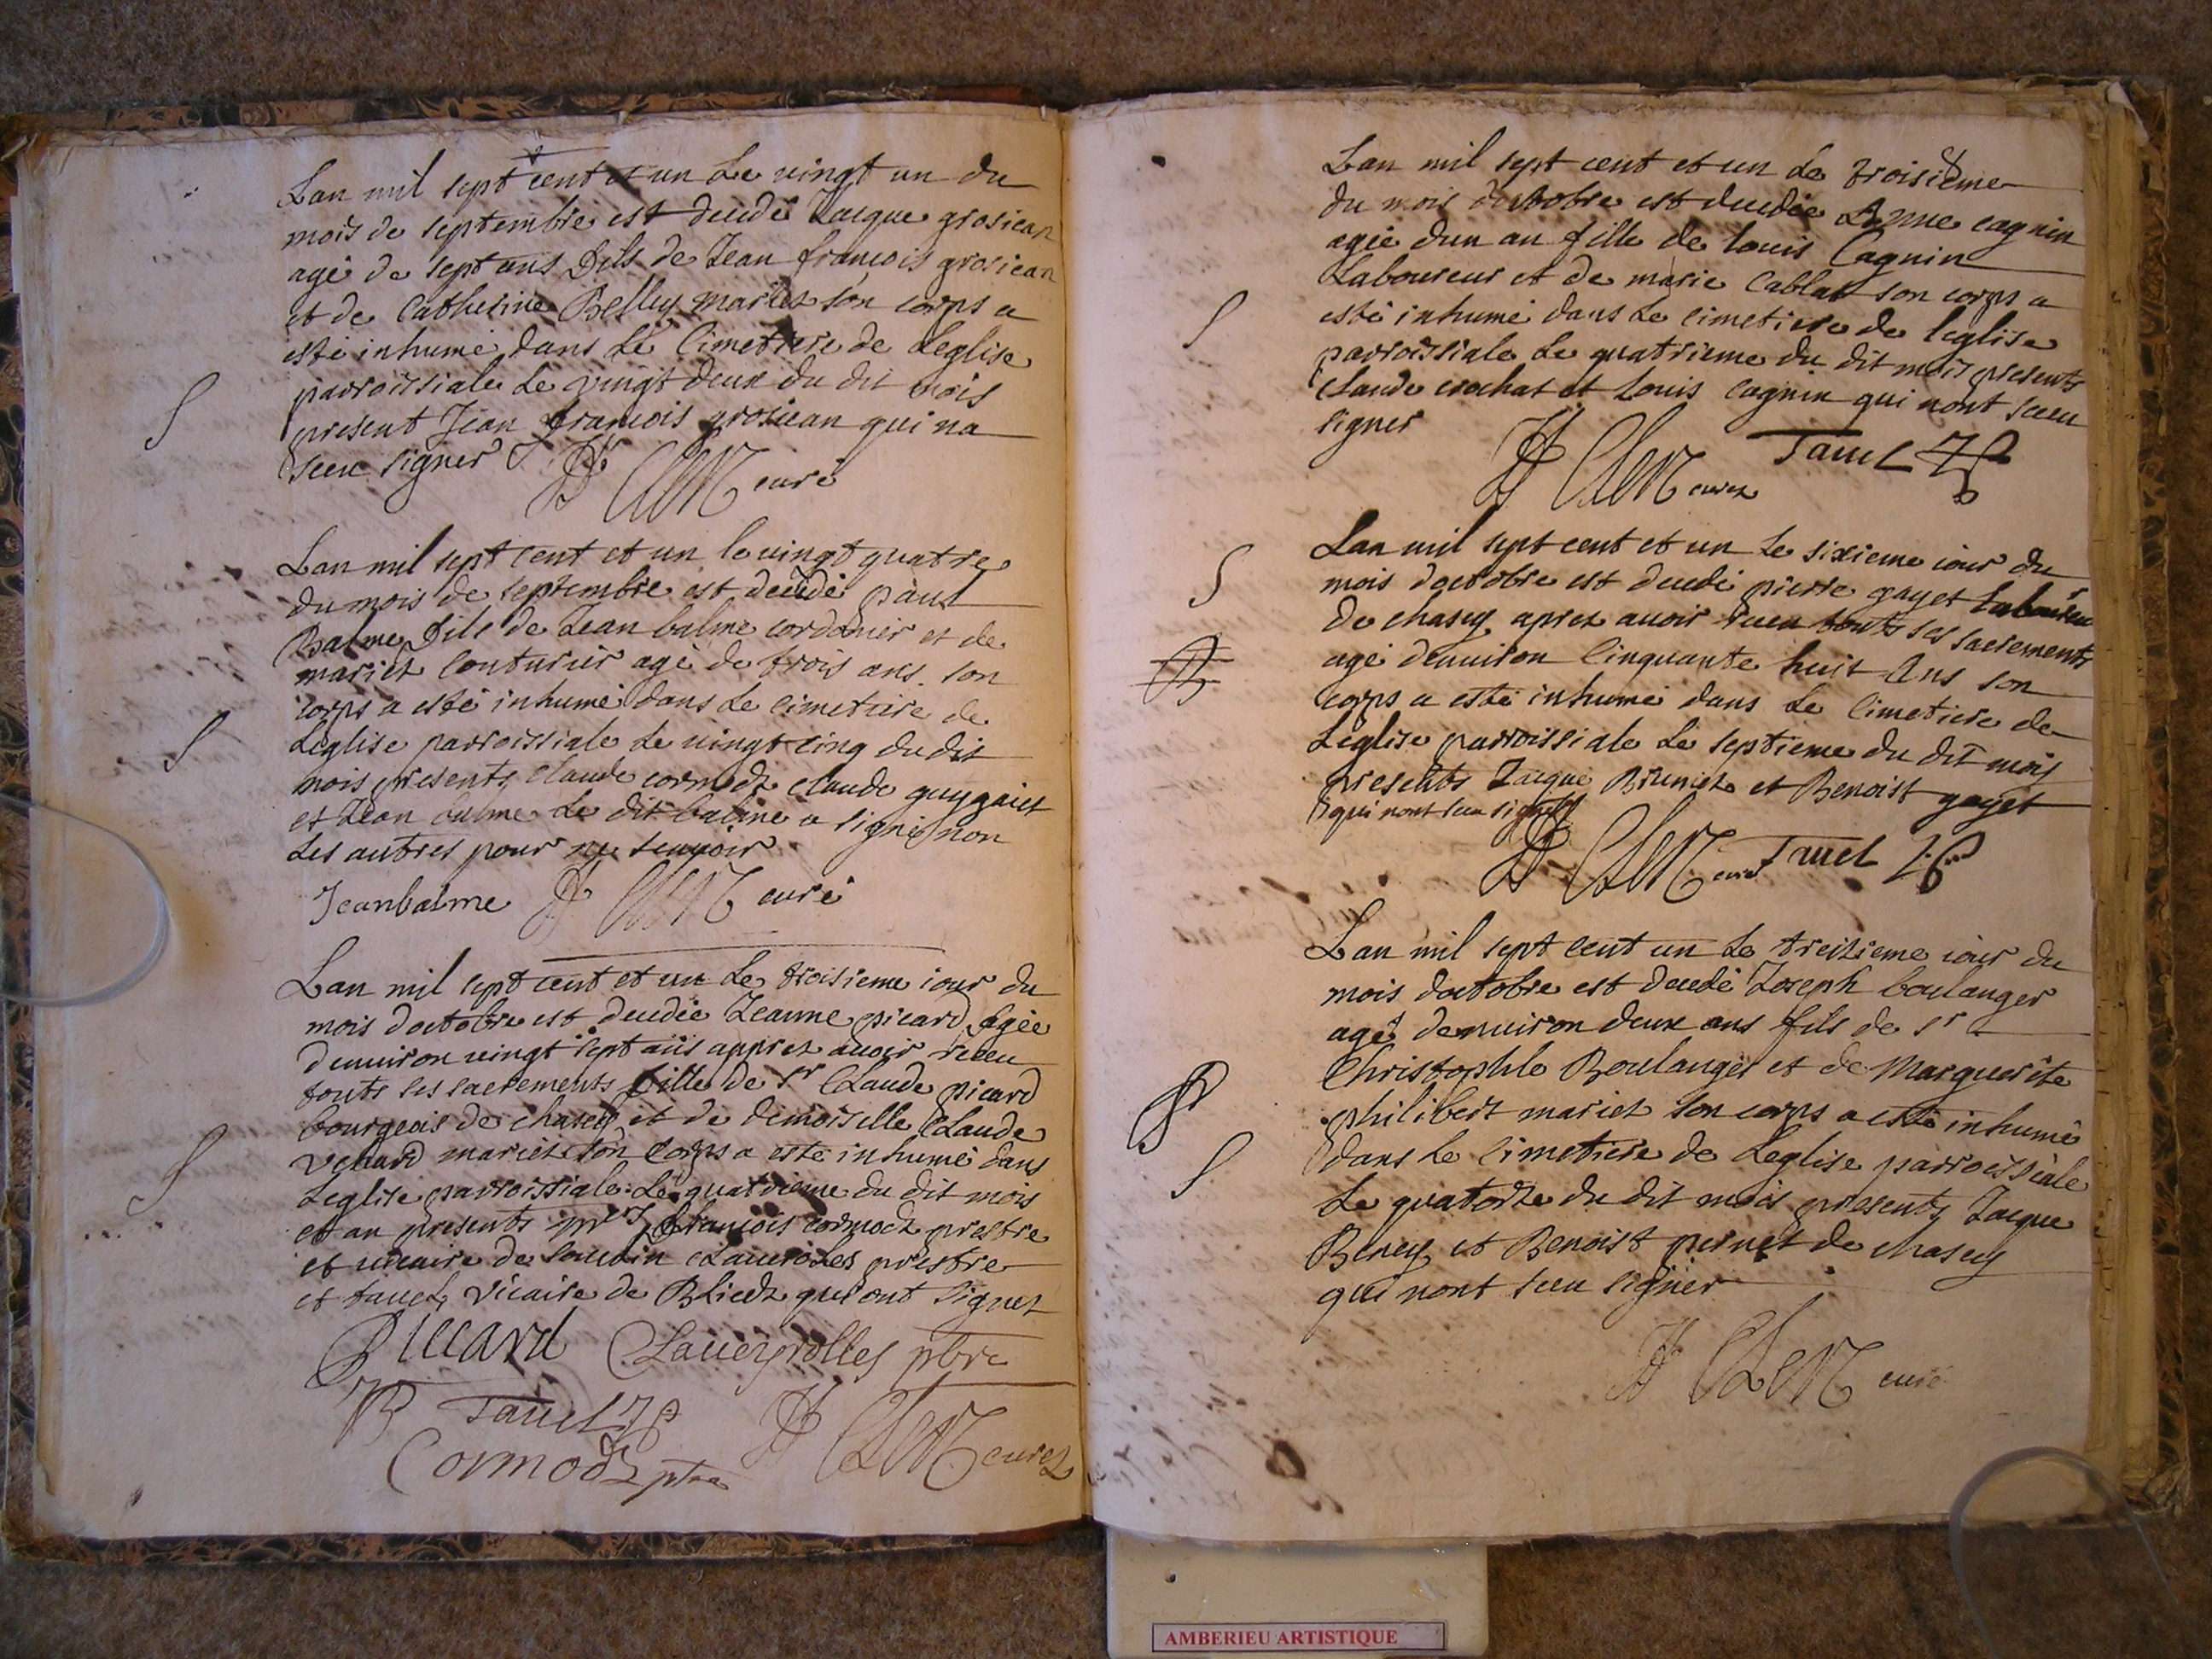 Lan mil sept cent et un Le vingt un du
mois de septembre est decede Jacque grosiean
agé de sept ans fils de Jean francois grosiean
et de Catherine Belley mariez son corps a
esté inhumé dans Le Cimetiere de Leglise
parroissiale Le vingt deux du dit mois
present Jean francois grosiean qui na
sceu signer
curé
Lan mil sept cent et un le vingt quatre
du mois de septembre est decedé paul
Balme fils de Jean balme cordonier et de
mariet Couturier agé de trois ans son
corps a esté inhumé dans Le cimetiere de
Leglise parroissiale Le vingt cinq du dit
mois presents Claude cormodz claude guygaict
et Jean balme Le dit balme a signé non
Les autres pour ne scavoir
Jeanbalme curé
Lan mil sept cent et un Le troisieme iour du
mois doctobre est decedée Jeanne picard agée
denuiron vingt sept ans apprez avoir receu
touts ses sacrements fille de Sr Claude picard
bourgeois de chasey et de demoiselle Claude
mariez son Corps a esté inhumé dans
Leglise parroissiale Le quatrieme du dit mois
et an presents francois cormodz prestre
et vicaire de prestre
et tauel vicaire de Bliedz qui ont signez
Piccard Lauerprolles pbre
Tauel
Cormodz ptre curez
Lan mil sept cent et un Le troisieme
du mois doctobre est decedée Anne cagnin
agée dun an fille de louis Cagnin
Laboureur et de marie Cablat son corps a
esté inhumé dans Le cimetiere de leglise
parroissiale Le quatrieme du dit mois presents
Claude crochat et Louis cagnin qui nont sceu
signer
curez Tauel
Lan mil sept cent et un Le sixieme iour du
mois doctobre est decedé pierre gayet Laboureur
de chasey aprez auoir receu touts ses sacrements
agé denuiron Cinquante huit ans son
corps a esté inhumé dans Le Cimetiere de
Leglise parroissiale Le septieme du dit mois
presents Jacque Bruniez et Benoist gayet
qui nont sceu signer
curé Tauel
Lan mil sept cent un Le treizieme iour du
mois doctobre est decedé Joseph boulanger
agé denuiron deux ans fils de Sr
Christophle Boulanger et de Marguerite
philibert mariez son corps a esté inhumé
dans Le Cimetiere de Leglise parroissiale
Le quatorze du dit mois presents Jacque
Beney et Benoist pernet de chasey
qui nont sceu signer
curé
AMBERIEU ARTISTIQUE